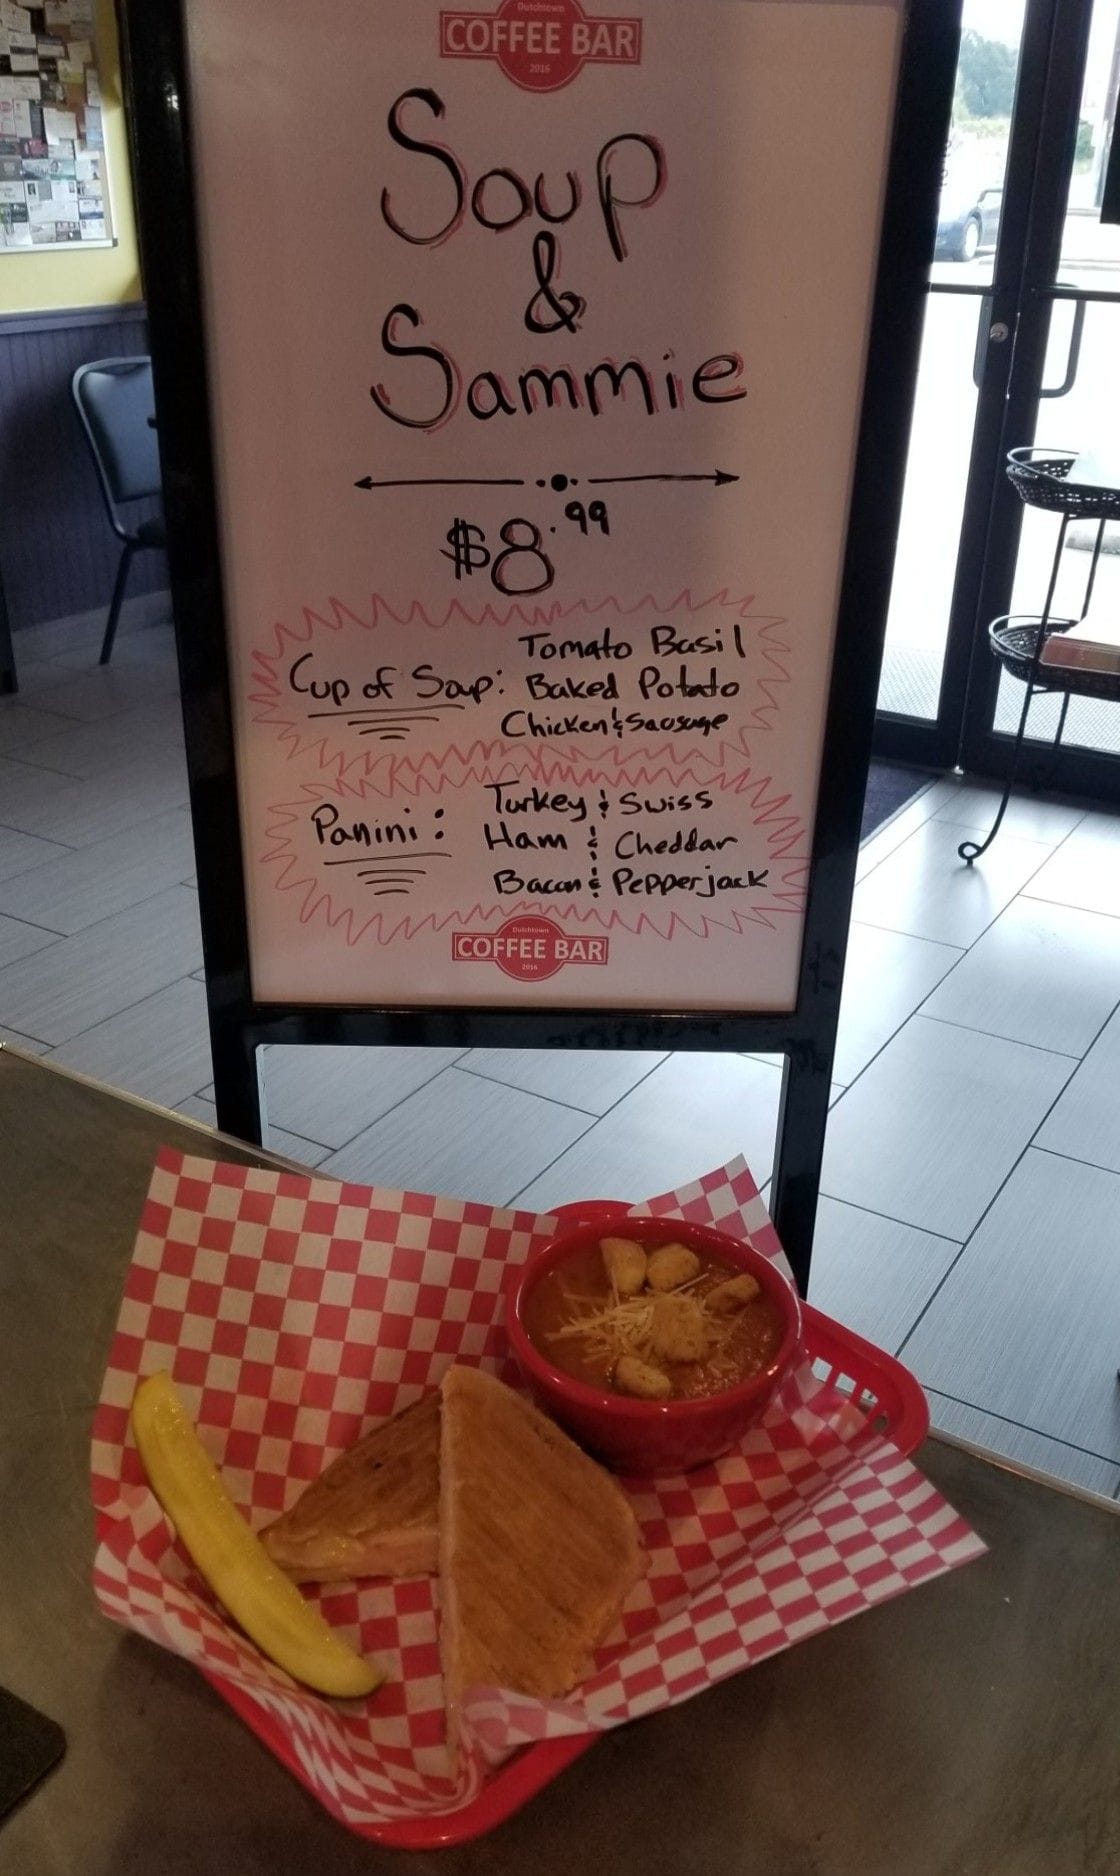 Dutchtown
COFFEE BAR
2016
Soup
&
Sammie
$8.99
Cup of Soup:
Tomato Basil
Baked Potato
Chicken & Sausage
Panini:
Turkey & Swiss
Ham & Cheddar
Bacon & Pepperjack
Dutchtown
COFFEE BAR
2016